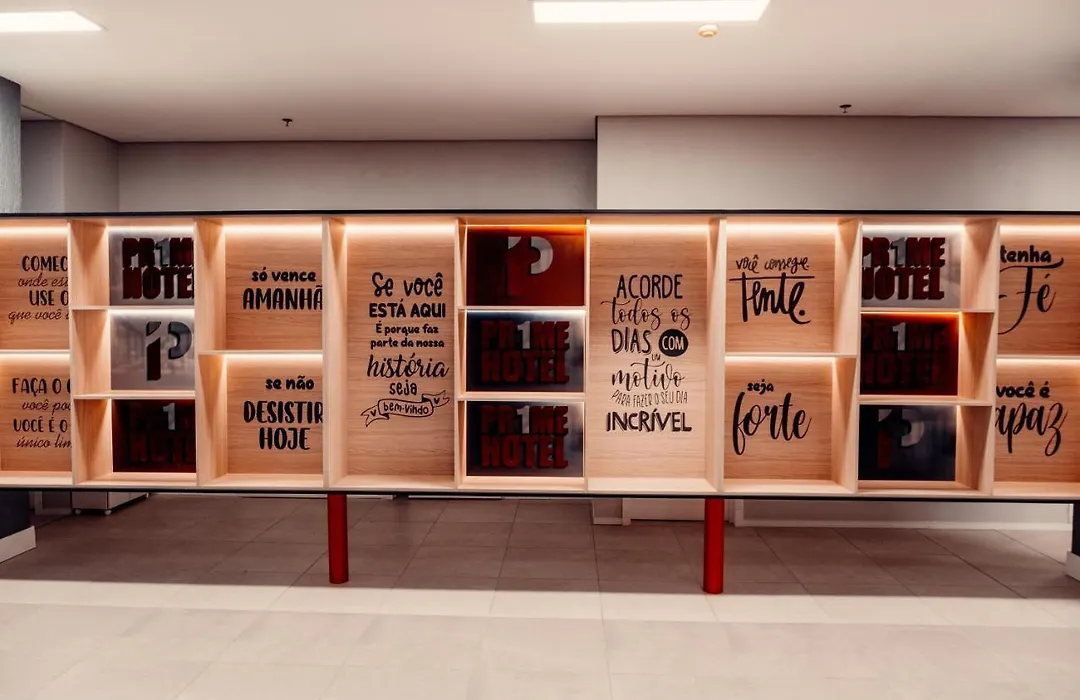 COMEC
onde est
USE O
que você
FAÇA O
você po
VOCÊ É O
único lim
PR1ME
HOTEL
1P
PR1ME
HOTEL
só vence
AMANHÃ
se não
DESISTIR
HOJE
Se você
ESTÁ AQUI
É porque faz
parte da nossa
história
seja
bem-vindo
1P
PR1ME
HOTEL
PR1ME
HOTEL
ACORDE
todos os
DIAS COM
um
motivo
PARA FAZER O SEU DIA
INCRÍVEL
você consegue
Tente.
seja
forte
PR1ME
HOTEL
PR1ME
HOTEL
1P
tenha
Fé
você é
apaz